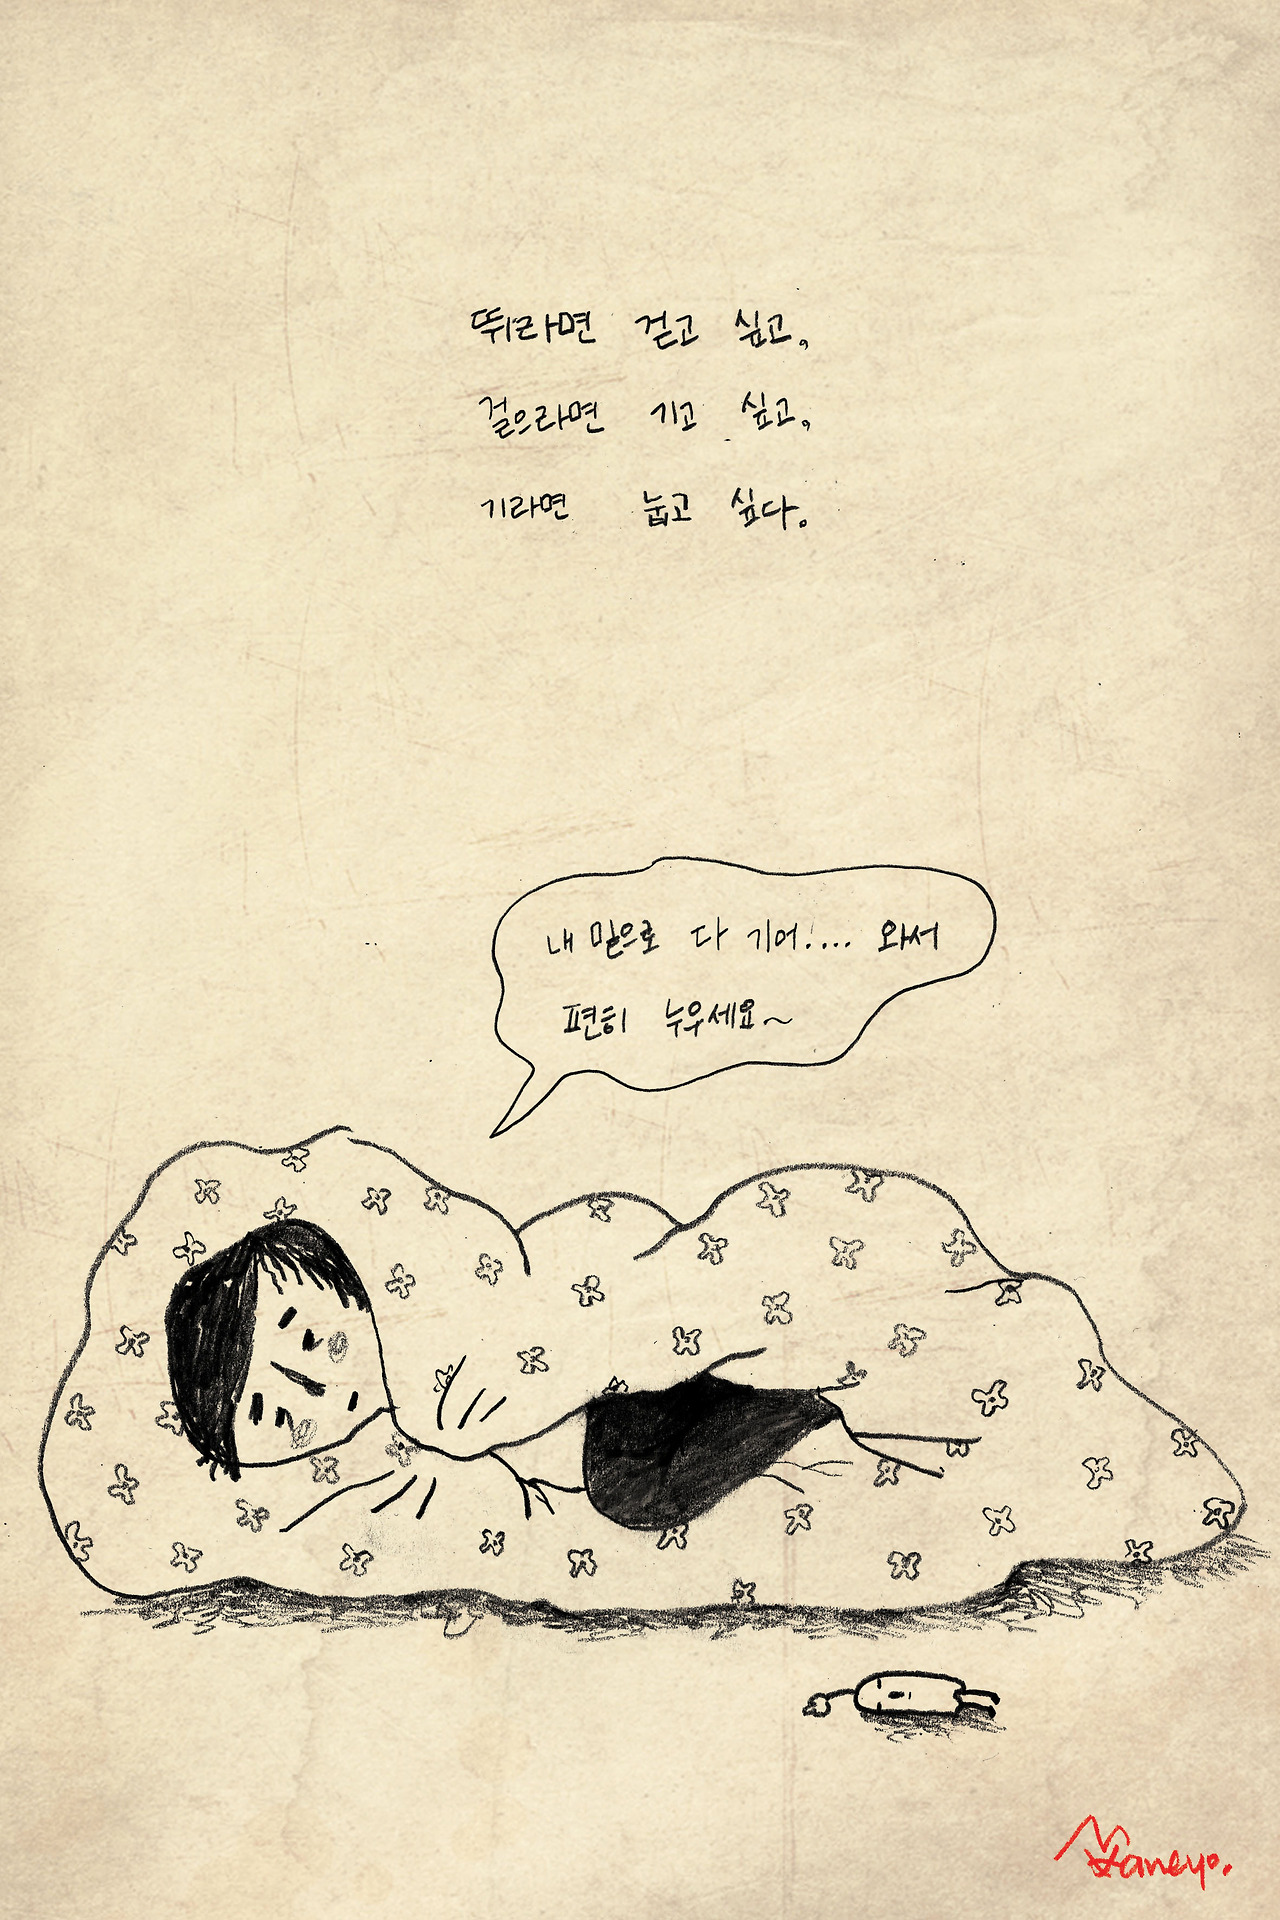 뛰라면 걷고 싶고,
걸으라면 기고 싶고,
기라면 눕고 싶다.
내 밑으로 다 기어.... 와서
편히 누우세요~